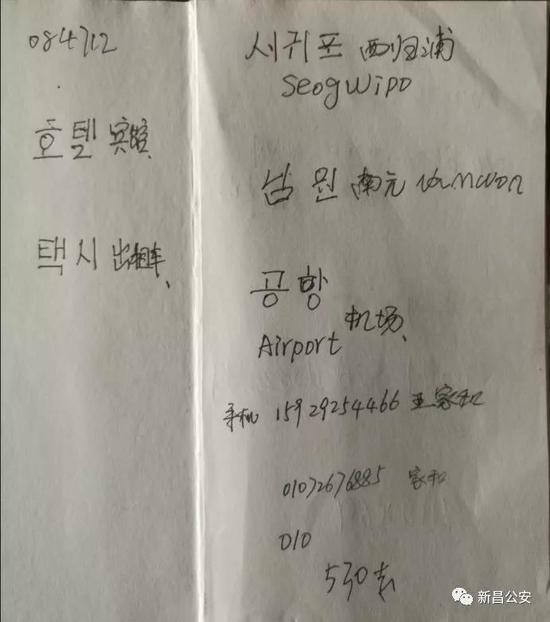 084712
호텔 宾馆、
택시 出租车、
서귀포 西归浦
Seogwipo
남원 南元 Namwon
공항
Airport 机场、
手机 15929254466 王家和
01072676885 家和
010
530去
新昌公安